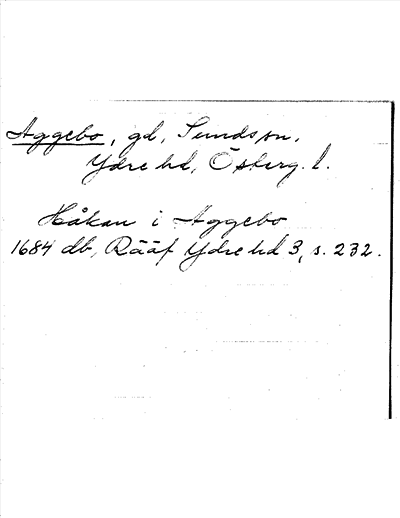 Aggebo, gd, Sunds sn,
Ydre hd, Österg. l.
Håkan i Aggebo
1684 db, Rääf Ydre hd 3, s. 232.